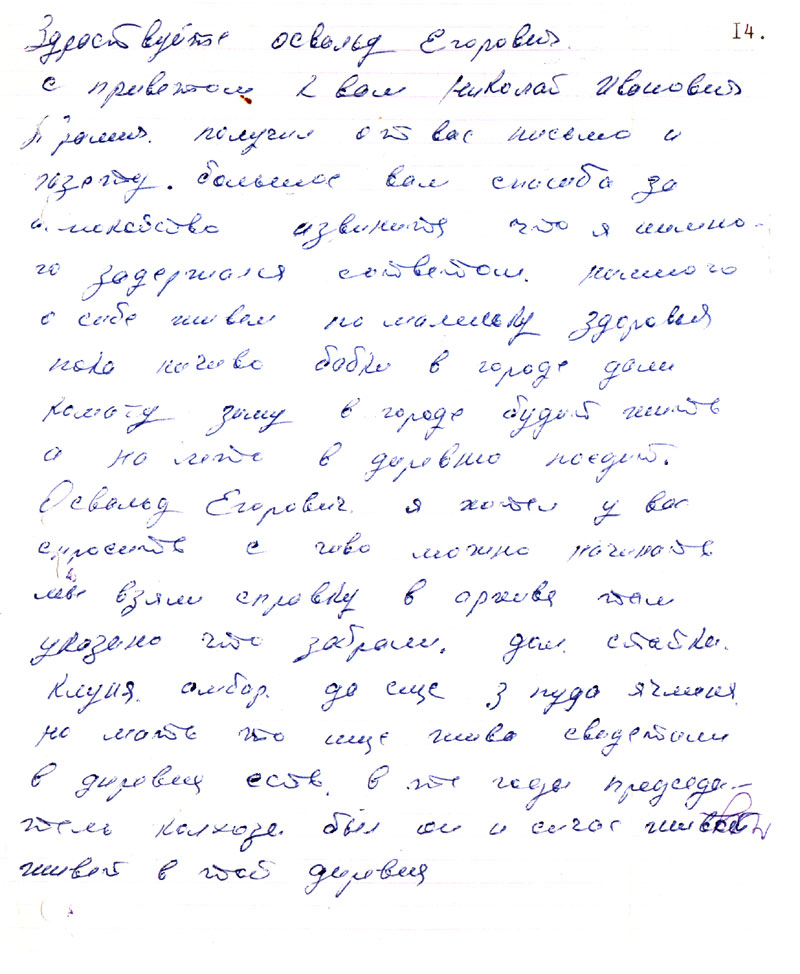 14.
Здраствуйте освальд Егорович.
с приветом к вам Николай Иванович
получил от вас письмо и
газету. большое вам спасиба за
извините что я нимно-
го задержался сответом. нимного
о себе живем по малиньку здоровья
пока ничиво бабки в городе дали
комату зиму в городе будит жить
а на лето в деревню поедит.
Освальд Егорович. я хотел у вас
спросить с чиво можно начинать
мы взяли справку в архиве там
указано что забрали. дом. стайка.
клуня. амбар. да еще 3 пуда ячменя
но мать то ище жива сведетели
в деревне есть. в те годы председа-
тель калхоза был он и сичас
живет в той деревне